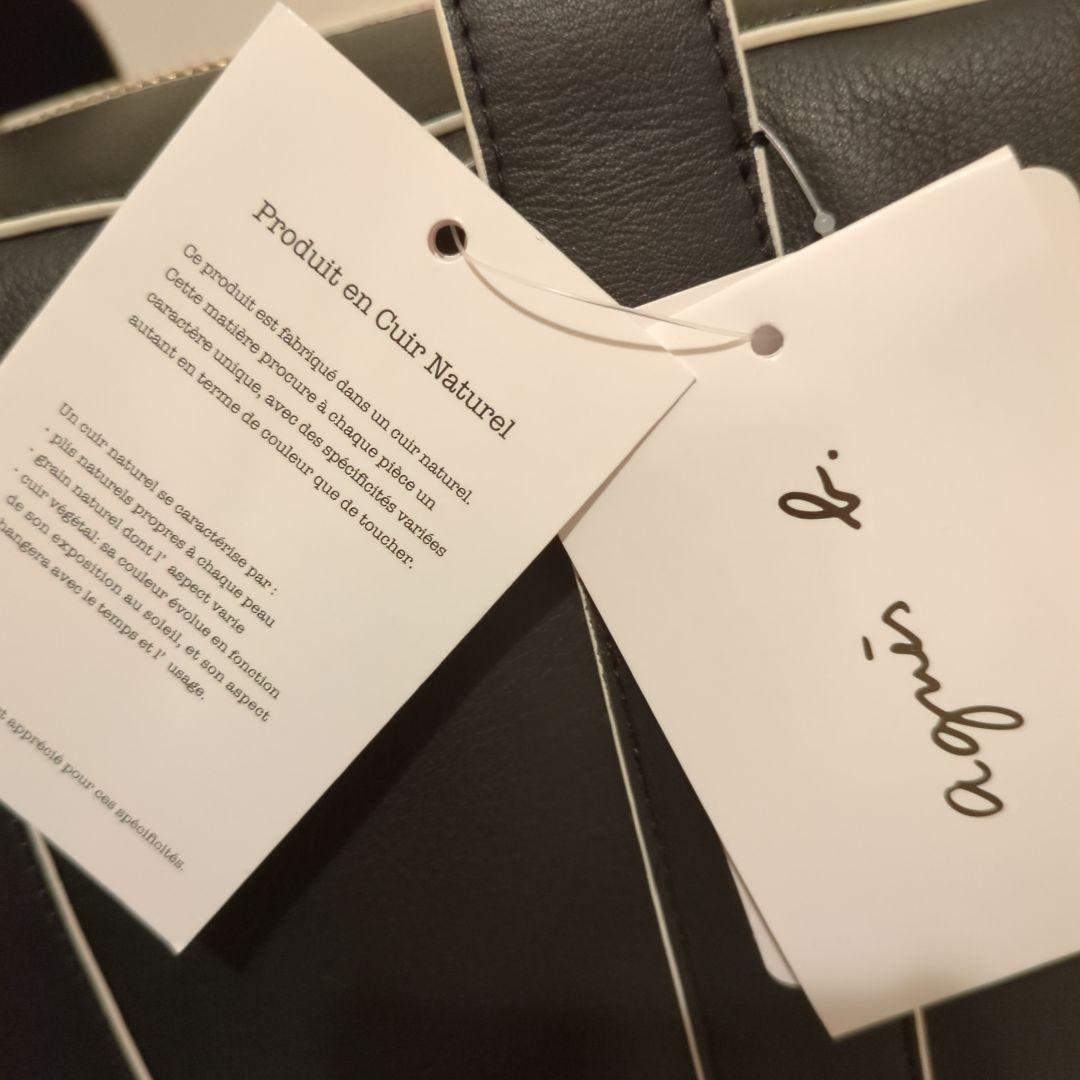 Produit en Cuir Naturel
Ce produit est fabriqué dans un cuir naturel.
Cette matière procure à chaque pièce un
caractère unique, avec des spécificités variées
autant en terme de couleur que de toucher.
Un cuir naturel se caractérise par :
- plis naturels propres à chaque peau
- grain naturel dont l' aspect varie
- cuir végétal: sa couleur évolue en fonction
de son exposition au soleil, et son aspect
hangera avec le temps et l' usage.
apprécié pour ces spécificités.
agnès b.